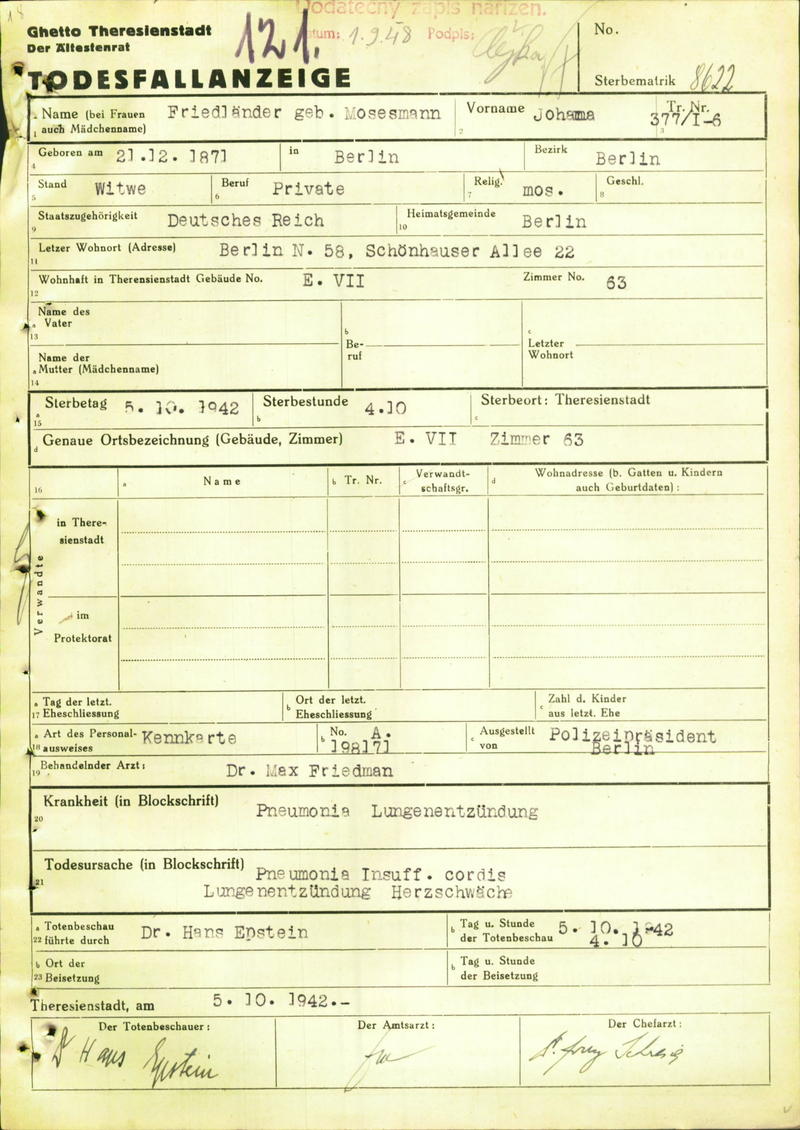 Dodatečný zápis nařízen.
Datum: 1.9.48 Podpis:
121.
Ghetto Theresienstadt
Der Ältestenrat
TODESFALLANZEIGE
No.
Sterbematrik 8622
Name (bei Frauen auch Mädchenname) Friedländer geb. Mosesmann Vorname Johama Tr. Nr. 377/I-6
1 2 3
Geboren am 21.12. 1871 in Berlin Bezirk Berlin
4
Stand Witwe Beruf Private Relig. mos. Geschl.
5 6 7 8
Staatszugehörigkeit Deutsches Reich Heimatsgemeinde Berlin
9 10
Letzer Wohnort (Adresse) Berlin N. 58, Schönhauser Allee 22
11
Wohnhaft in Therensienstadt Gebäude No. E. VII Zimmer No. 63
12
Name des
a Vater
13
b
Be-
ruf
c
Letzter
Wohnort
Name der
a Mutter (Mädchenname)
14
Sterbetag 5. 10. 1942 Sterbestunde 4.10 Sterbeort: Theresienstadt
a b c
15
d Genaue Ortsbezeichnung (Gebäude, Zimmer) E. VII Zimmer 63
16 a Name b Tr. Nr. c Verwandt-
schaftsgr. d Wohnadresse (b. Gatten u. Kindern
auch Geburtdaten) :
Verwandte
in There-
sienstadt
im
Protektorat
a Tag der letzt.
17 Eheschliessung
b Ort der letzt.
Eheschliessung
c Zahl d. Kinder
aus letzt. Ehe
a Art des Personal-
18 ausweises Kennkarte
b No. A.
198171
c Ausgestellt
von Polizeipräsident
Berlin
19 Behandelnder Arzt: Dr. Max Friedman
Krankheit (in Blockschrift) Pneumonia Lungenentzündung
20
Todesursache (in Blockschrift) Pneumonia Insuff. cordis
21 Lungenentzündung Herzschwäche
a Totenbeschau
22 führte durch Dr. Hans Epstein
b Tag u. Stunde
der Totenbeschau 5. 10. 1942
4. 10
b Ort der
23 Beisetzung
b Tag u. Stunde
der Beisetzung
Theresienstadt, am 5. 10. 1942.-
Der Totenbeschauer: Der Amtsarzt: Der Chefarzt:
Dr Hans Epstein